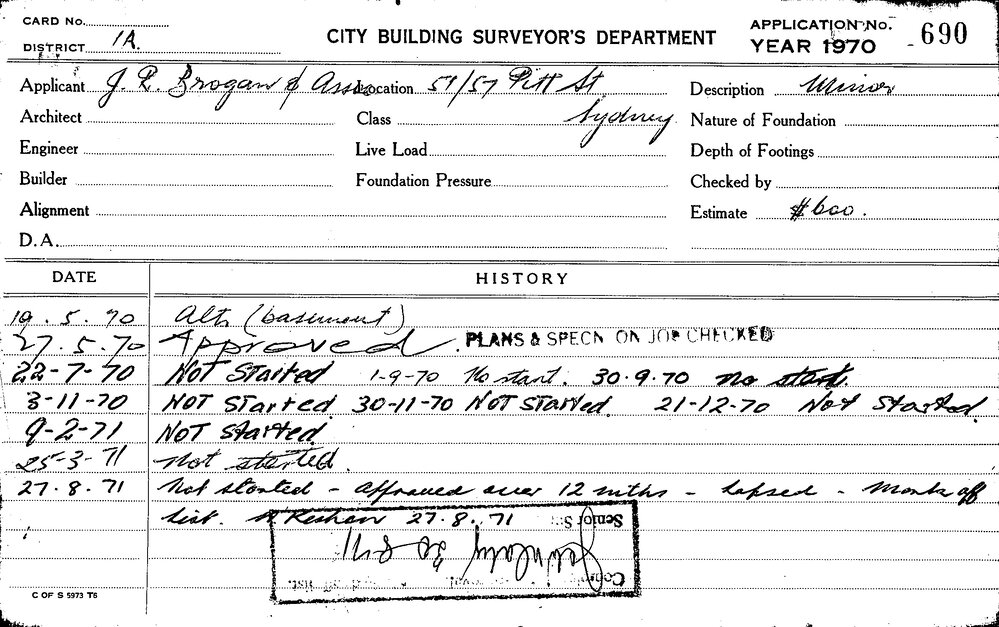 CARD No.
DISTRICT 1A.
CITY BUILDING SURVEYOR'S DEPARTMENT
APPLICATION No. 690
YEAR 1970
Applicant J. R. Brogan & Assoc Location 51/57 Pitt St Description Minor
Architect Class Sydney Nature of Foundation
Engineer Live Load Depth of Footings
Builder Foundation Pressure Checked by
Alignment Estimate $600.
D.A.
DATE HISTORY
19.5.70 Alts (basement)
27.5.70 Approved. PLANS & SPECN ON JOB CHECKED
22-7-70 NOT Started 1-9-70 No start. 30.9.70 no start.
3-11-70 NOT Started 30-11-70 NOT STARTED. 21-12-70 Not Started.
9-2-71 NOT Started.
25-3-71 Not started.
27.8.71 Not started - approved over 12 mths - lapsed - Mark off
list. 27.8.71
Senior
C OF S 5973 T6